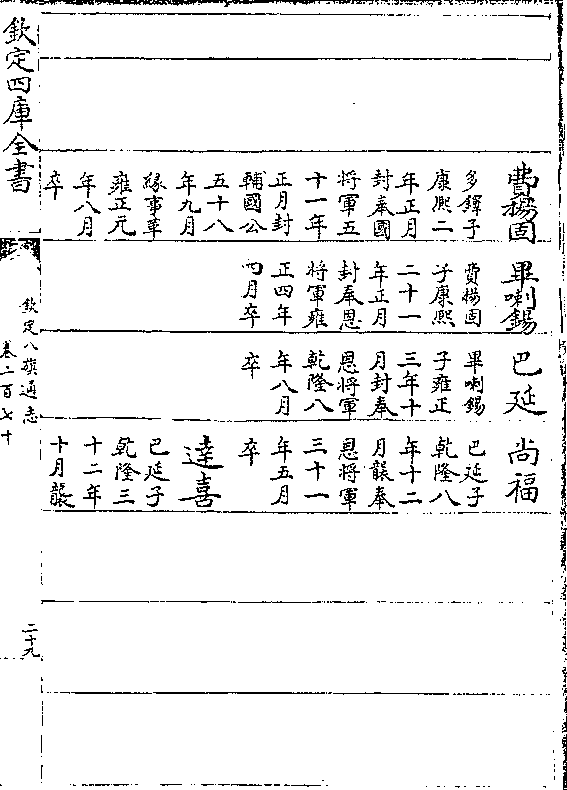 費揚固
多鐸子
康熙二
年正月
封奉國
将軍五
十一年
正月封
輔國公
五十八
年九月
縁事革
雍正元
年八月
卒
畢喇錫
費揚固
子康熙
二十一
年正月
封奉恩
将軍雍
正四年
四月卒
巴延
畢喇錫
子雍正
三年十
月封奉
恩将軍
乾隆八
年八月
卒
尚福
巴延子
乾隆八
年十二
月襲奉
恩将軍
三十一
年五月
卒
達喜
巴延子
乾隆三
十二年
十月襲
欽定四庫全書
欽定八旗通志
卷二百七十
二十九